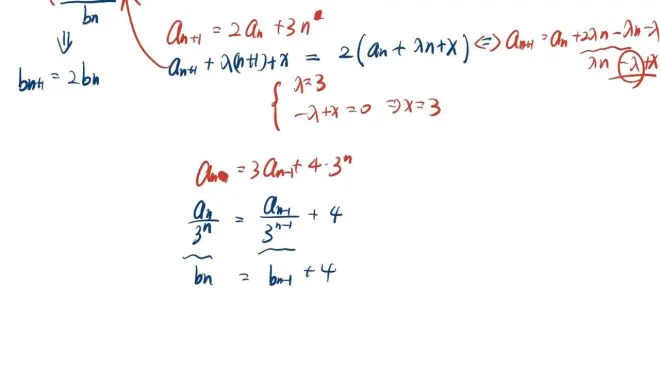 bn
aₙ₊₁ = 2aₙ + 3n
⇓
aₙ₊₁ + λ(n+1) + x = 2(aₙ + λn + x) ⇔ aₙ₊₁ = aₙ + 2λn − λn − λ
bₙ₊₁ = 2bₙ
λn − λ + x
{ λ = 3
−λ + x = 0 ⇒ x = 3
aₙ = 3aₙ₋₁ + 4·3ⁿ
aₙ/3ⁿ = aₙ₋₁/3ⁿ⁻¹ + 4
bₙ = bₙ₋₁ + 4